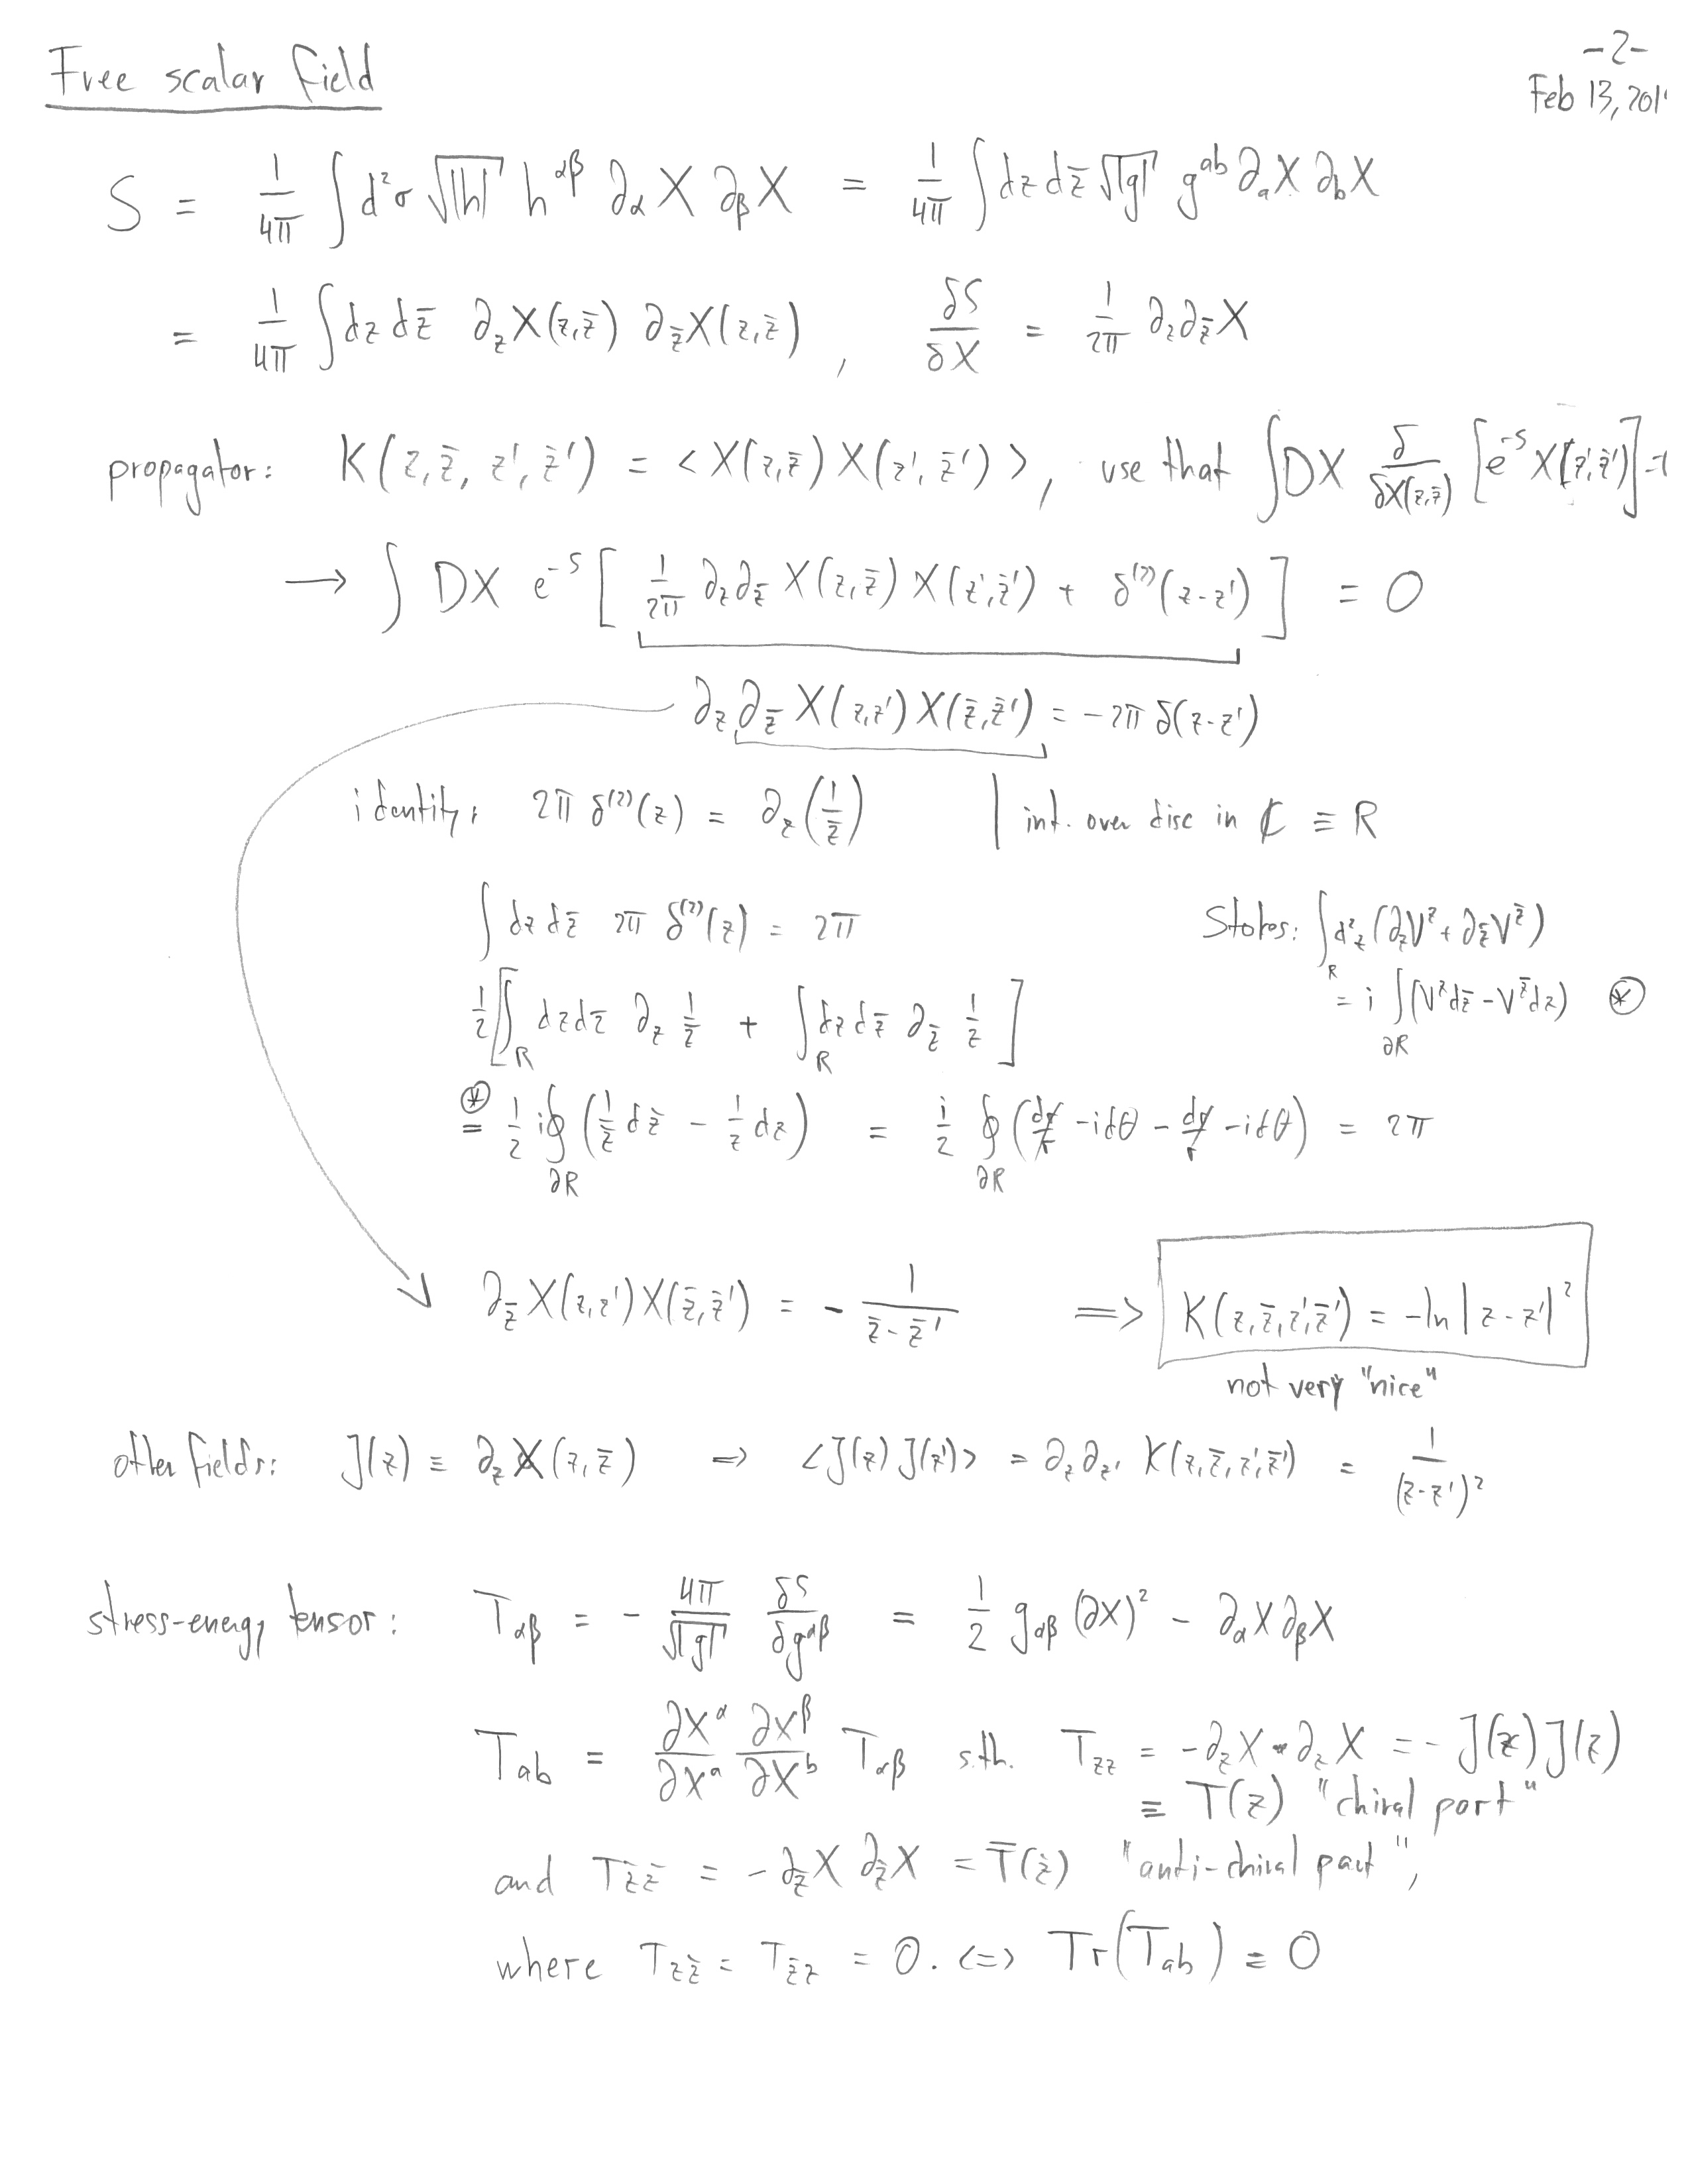 -2-
Free scalar field
Feb 13, 201
S = 1/4π ∫d²σ √|h| h^αβ ∂_α X ∂_β X = 1/4π ∫dz dz̄ √|g| g^ab ∂_a X ∂_b X
= 1/4π ∫dz dz̄ ∂_z X(z,z̄) ∂_z̄ X(z,z̄) , δS/δX = 1/2π ∂_z ∂_z̄ X
propagator: K(z,z̄,z',z̄') = <X(z,z̄) X(z',z̄')>, use that ∫DX δ/δX(z,z̄) [e^-S X(z',z̄')] =
→ ∫ DX e^-S [ 1/2π ∂_z ∂_z̄ X(z,z̄) X(z',z̄') + δ^(2)(z-z') ] = 0
∂_z ∂_z̄ X(z,z') X(z̄,z̄') = -2π δ(z-z')
identity: 2π δ^(2)(z) = ∂_z (1/z̄) | int. over disc in ℂ ≡ R
∫ dz dz̄ 2π δ^(2)(z) = 2π
Stokes: ∫_R d²z (∂_z V^z + ∂_z̄ V^z̄)
= i ∫_∂R (V^z dz̄ - V^z̄ dz) ⊛
1/2 [∫_R dz dz̄ ∂_z 1/z̄ + ∫_R dz dz̄ ∂_z̄ 1/z ]
⊛= 1/2 i ∮_∂R (1/z̄ dz̄ - 1/z dz) = i/2 ∮_∂R (dr/r - idθ - dr/r - idθ) = 2π
∂_z̄ X(z,z') X(z̄,z̄') = - 1/(z̄-z̄') ⟹ K(z,z̄,z',z̄') = -ln|z-z'|²
not very "nice"
other fields: J(z) ≡ ∂_z X(z,z̄) ⇒ <J(z) J(z')> = ∂_z ∂_z' K(z,z̄,z',z̄') = 1/(z-z')²
stress-energy tensor: T_αβ = - 4π/√|g| δS/δg^αβ = 1/2 g_αβ (∂X)² - ∂_α X ∂_β X
T_ab = ∂X^α/∂X^a ∂X^β/∂X^b T_αβ s.th. T_zz = -∂_z X ∂_z X = - J(z) J(z)
≡ T(z) "chiral part"
and T_z̄z̄ = -∂_z̄ X ∂_z̄ X = T̄(z̄) "anti-chiral part",
where T_zz̄ = T_z̄z = 0. <=> Tr(T_ab) = 0